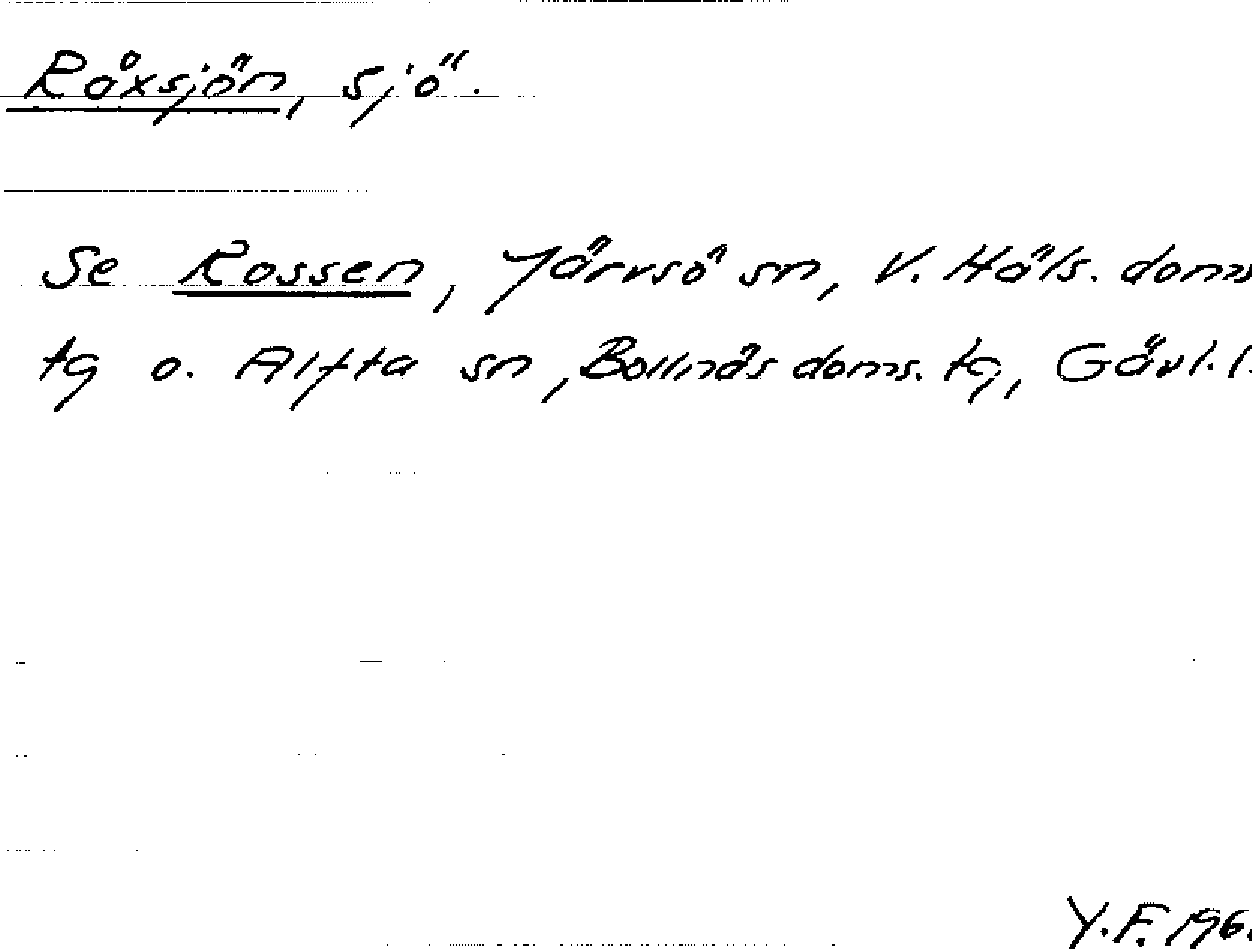 Råxsjön, sjö.
Se Rossen, Järvsö sn, V. Häls. doms
tg o. Alfta sn, Bollnäs doms. tg, Gävl. l.
Y.F. 196